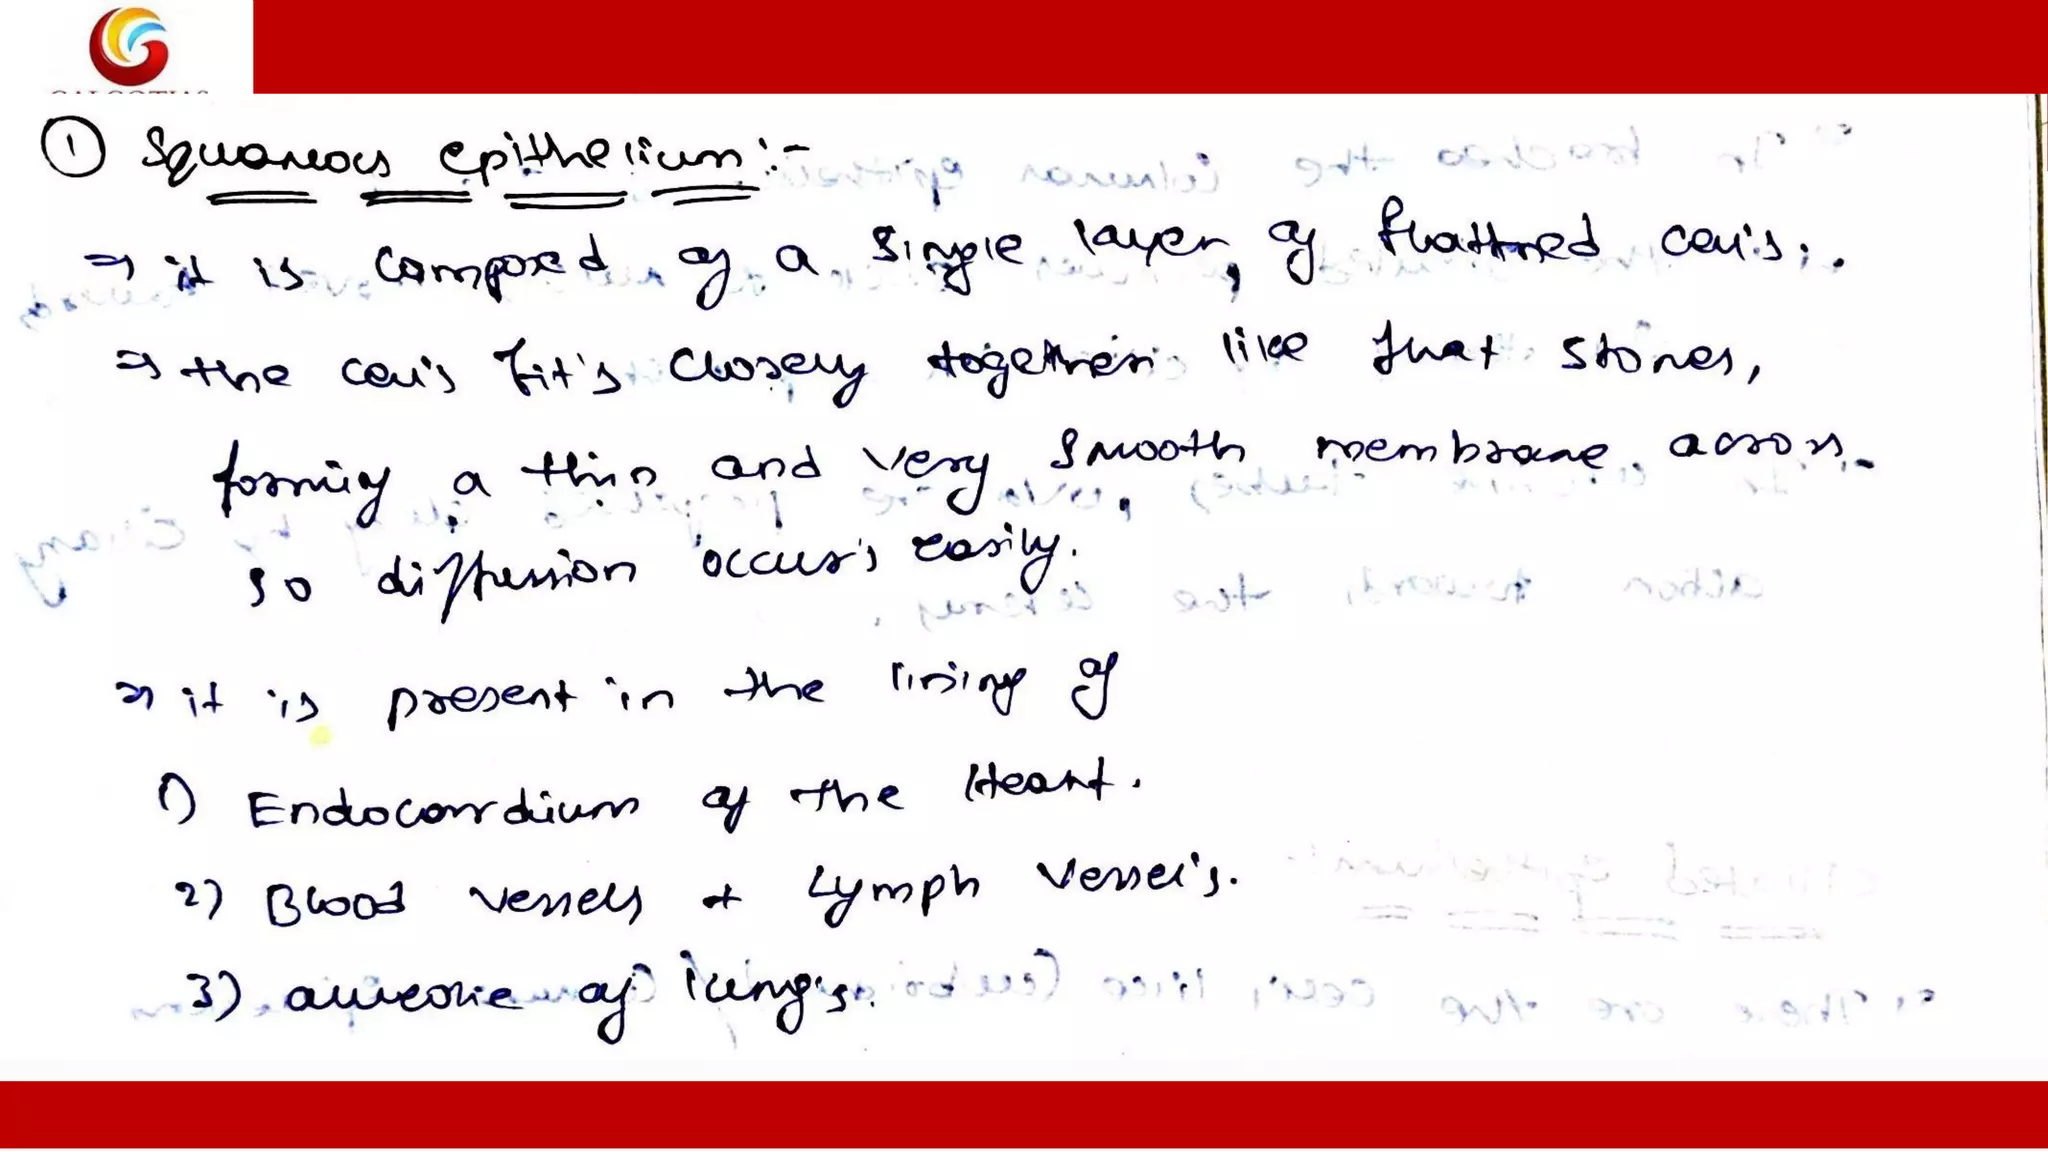 ① Squamous epithelium :-
⇒ it is composed of a single layer, of flattned cell's.
⇒ the cell's fit's closely together like flat stones,
forming a thin and very smooth membrane across.
so diffusion occur's easily.
⇒ it is present in the lining of
1) Endocardium of the Heart.
2) Blood vessels + Lymph vessel's.
3) alveolie of lung's.